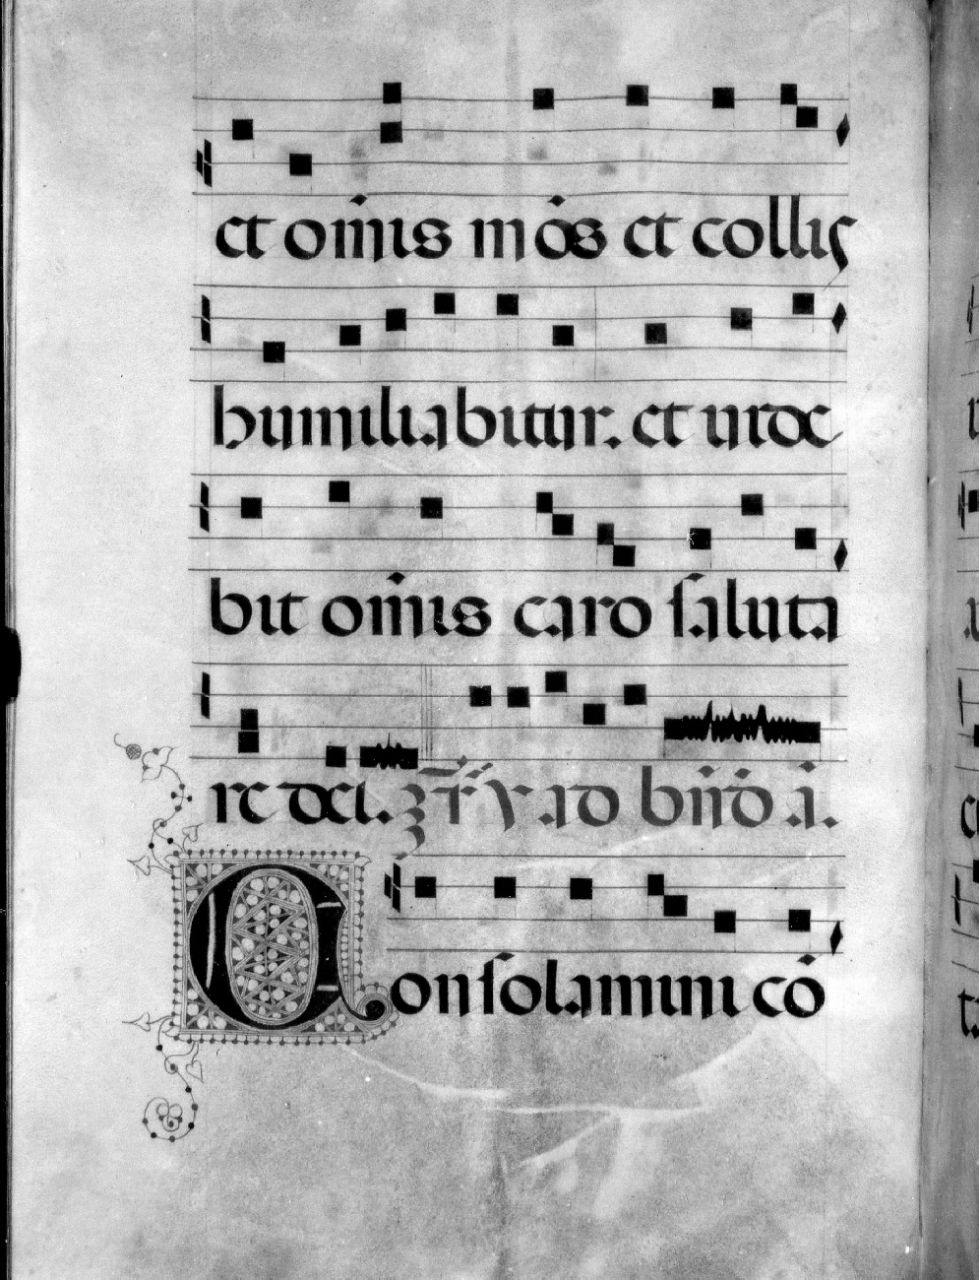 et om̄is mōs et collis
humiliabitur. et vide
bit om̄is caro saluta
re dei. Ad bn̄d̄ ā.
Consolamini cō